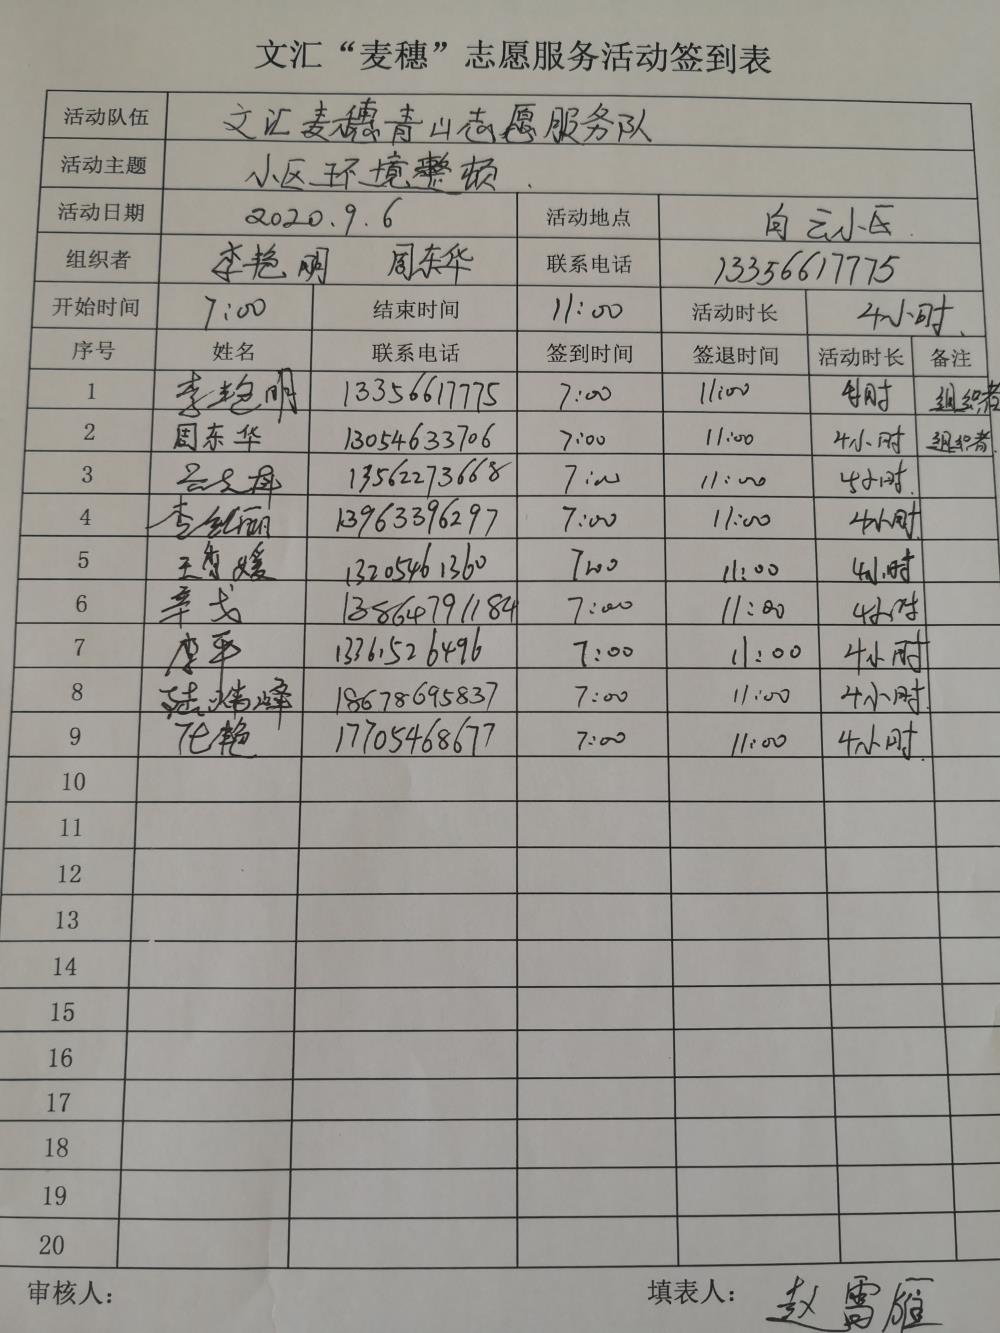 文汇“麦穗”志愿服务活动签到表
活动队伍 文汇麦穗青山志愿服务队
活动主题 小区环境整顿.
活动日期 2020.9.6 活动地点 向云小区.
组织者 李艳明 周东华 联系电话 13356617775
开始时间 7:00 结束时间 11:00 活动时长 4小时.
序号 姓名 联系电话 签到时间 签退时间 活动时长 备注
1 李艳明 13356617775 7:00 11:00 时 组织者
2 周东华 13054633706 7:00 11:00 4小时 组织者.
3 13562273668 7:00 11:00 小时.
4 李 丽 13963396297 7:00 11:00 4小时.
5 王 媛 13205461360 7:00 11:00 4小时
6 辛戈 13864791184 7:00 11:00 4小时
7 李平 13361526496 7:00 11:00 4小时
8 陆炜峰 18678695837 7:00 11:00 4小时.
9 张艳 17705468677 7:00 11:00 4小时.
10
11
12
13
14
15
16
17
18
19
20
审核人: 填表人: 赵雷雁